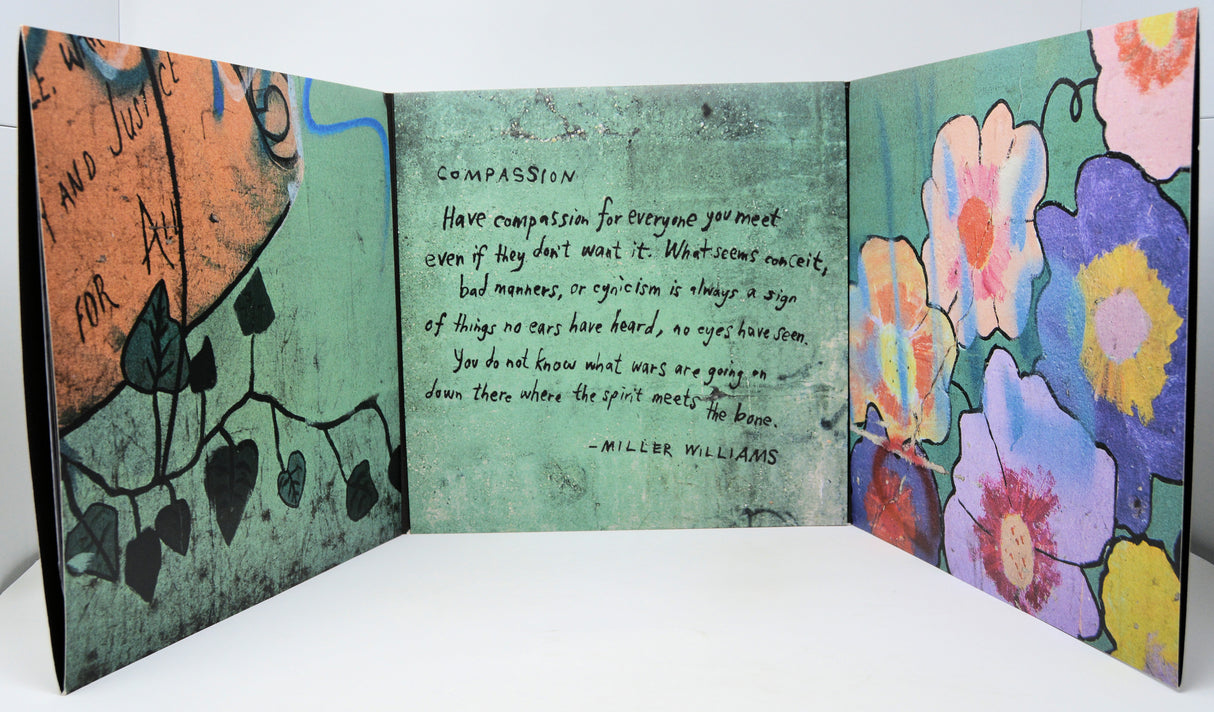 JUSTICE
AND
FOR ALL
COMPASSION
Have compassion for everyone you meet
even if they don't want it. What seems conceit,
bad manners, or cynicism is always a sign
of things no ears have heard, no eyes have seen.
You do not know what wars are going on
down there where the spirit meets the bone.
-MILLER WILLIAMS